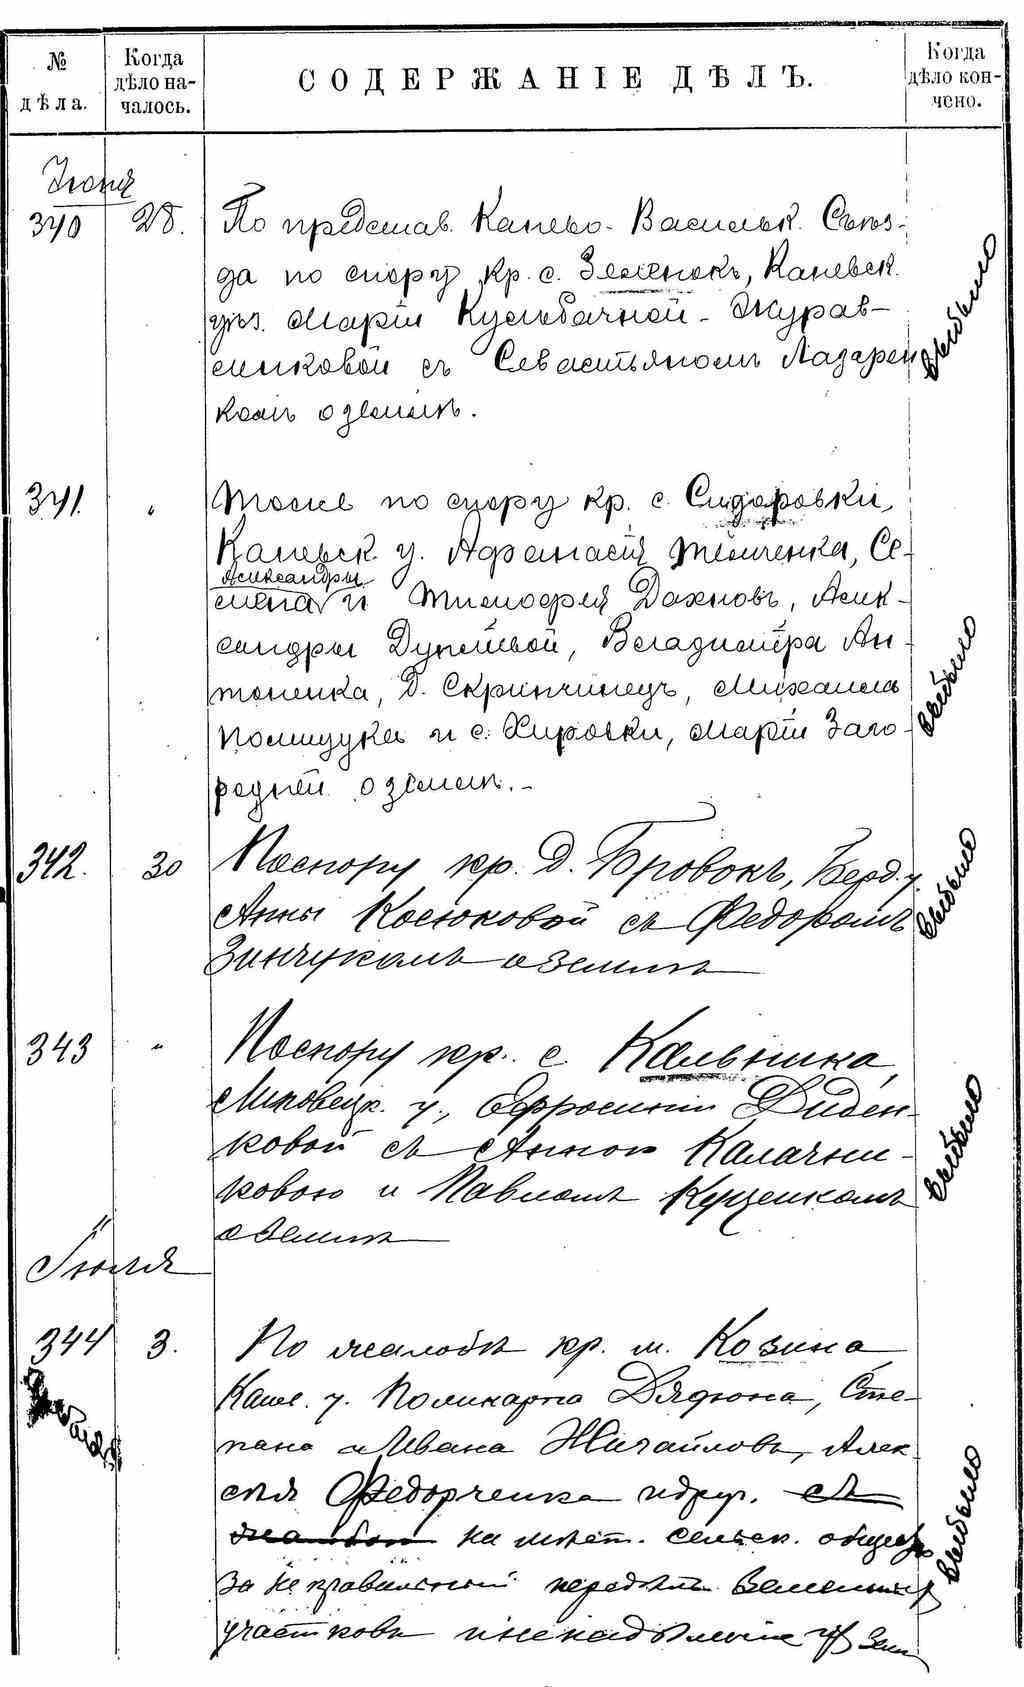 № дѣла.
Когда дѣло началось.
СОДЕРЖАНІЕ ДѢЛЪ.
Когда дѣло кончено.
Іюня
340 28. По представ. Канево-Васильк. Съѣз-
да по спору кр. с. Зеленокъ, Каневск.
уѣз. Маріи Кульбачной-Журав-
линковой съ Севастьяномъ Лазарен
комъ о землѣ.
выбыло
341. " Тоже по спору кр. с. Сидоровки,
Каневск. у. Афанасія Темченка, Се-
Александры
мена и Тимофея Дахновъ, Алек-
сандры Дунаевой, Владиміра Ан-
тоненка, д. Скрипчинецъ, Михаила
Полищука и с. Хировки, Маріи Заго-
родней о землѣ.-
выбыло
342. 30 По спору кр. д. Бровокъ, Берд. у.
Анны Косюковой съ Федоромъ
Зинчукомъ о землѣ
выбыло
343 " По спору кр. с. Кальника,
Липовецк. у., Ефросиніи Диден-
ковой съ Анною Калачни-
ковою и Павломъ Куценкомъ
о землѣ
выбыло
Іюля
344 3. По жалобѣ кр. м. Козина
Канев. у. Поликарпа Дядюна, Сте-
пана и Ивана Жичайловъ, Алек-
сѣя Федорченка и друг. съ
жалобою на мѣст. сельск. общество
за неправильный передѣлъ земельных
участковъ и ненадѣленіе их зем
выбыло